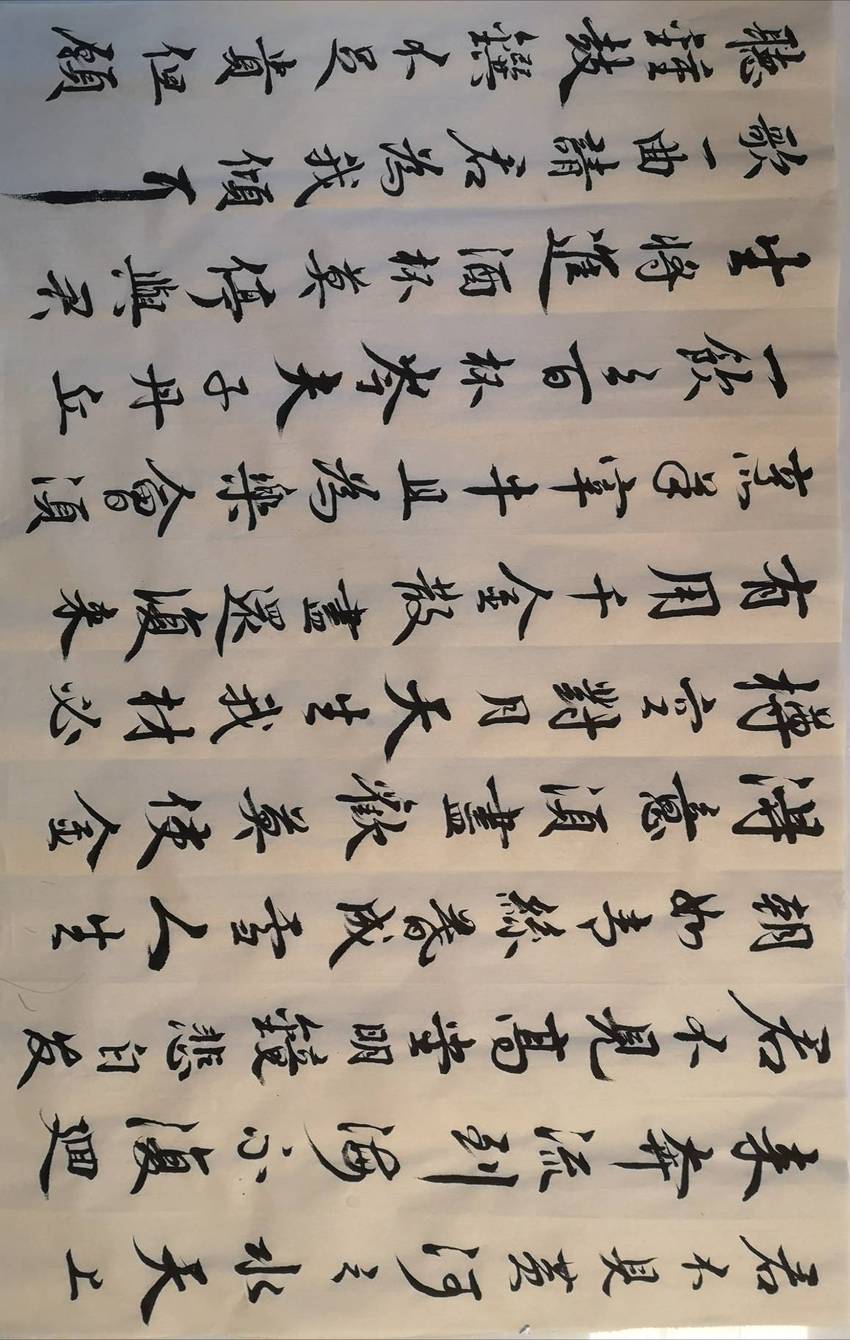 君不見黄河之水天上
来奔流到海不復迴
君不見高堂明鏡悲白发
朝如青絲暮成雪人生
得意須盡歡莫使金
樽空對月天生我材必
有用千金散盡還復来
烹羊宰牛且為樂會須
一飲三百杯岑夫子丹丘
生將進酒杯莫停與君
歌一曲請君為我傾耳
聽鐘鼓饌不足貴但願